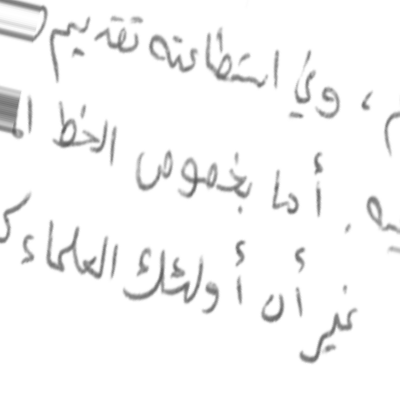 م ، وفي استطاعته تقديم
يه . أما بخصوص الخط ا
غير أن أولئك العلماء ك